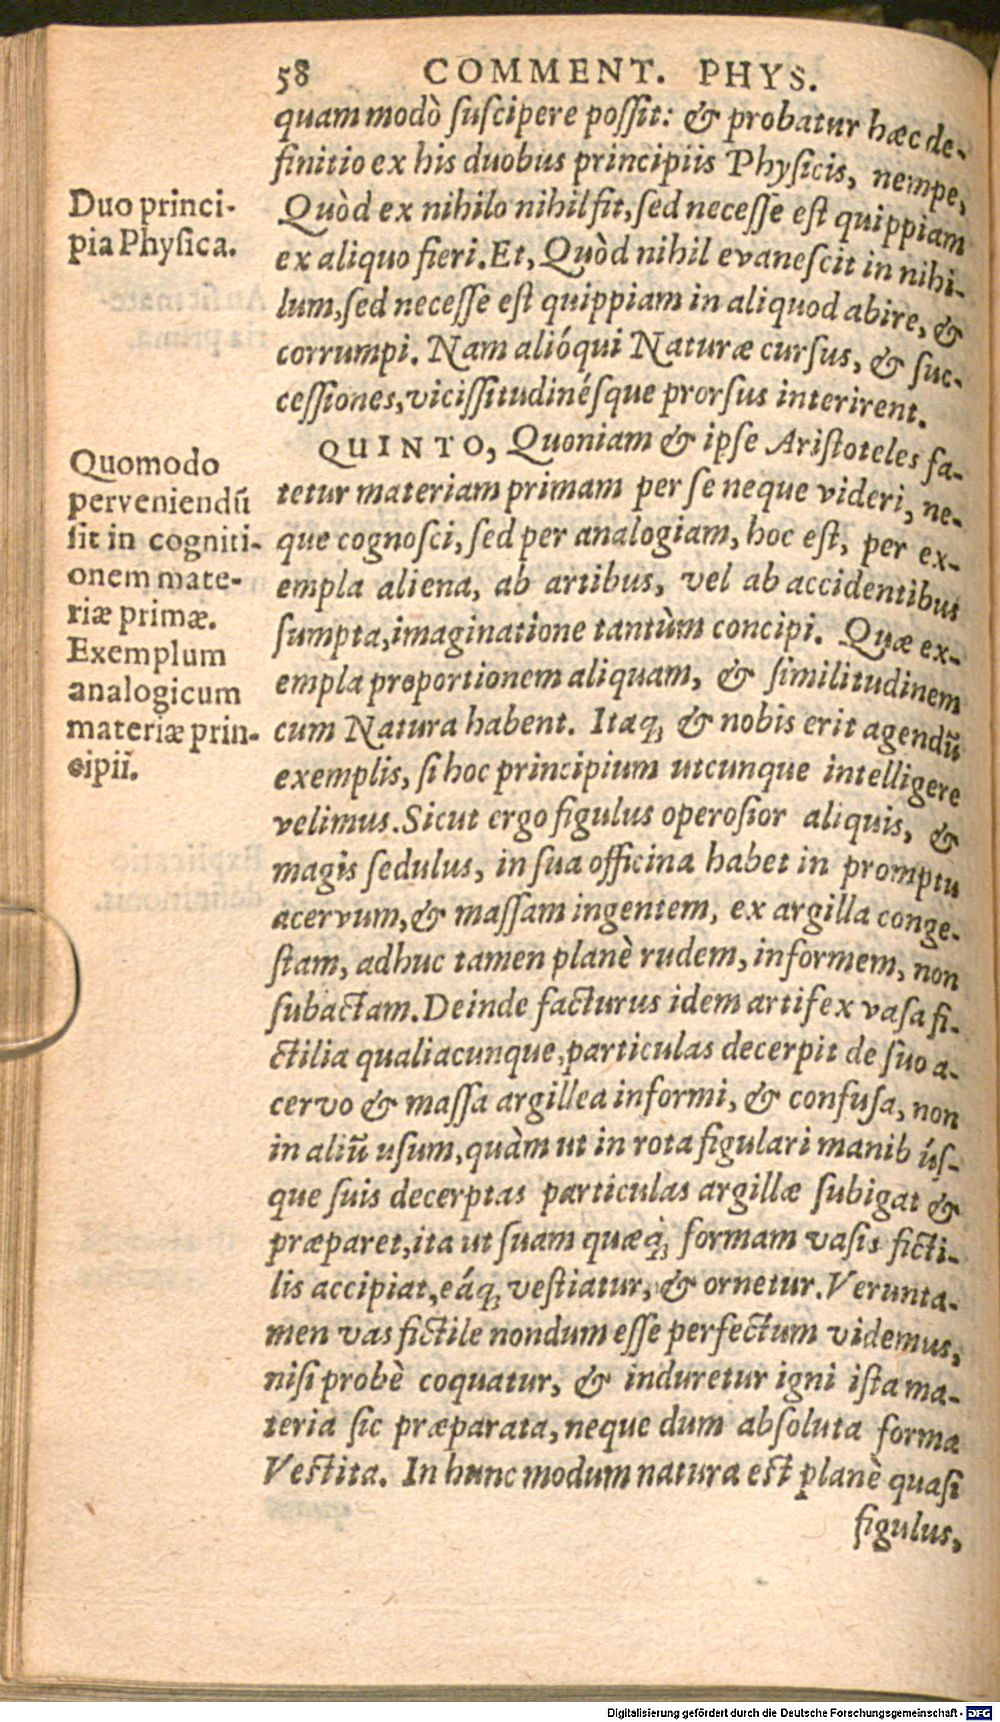 58 COMMENT. PHYS.
quam modò suscipere possit: & probatur hæc de-
finitio ex his duobus principiis Physicis, nempe,
Duo princi-
pia Physica.
Quòd ex nihilo nihil fit, sed necesse est quippiam
ex aliquo fieri. Et, Quòd nihil evanescit in nihi-
lum, sed necesse est quippiam in aliquod abire, &
corrumpi. Nam alióqui Naturæ cursus, & suc-
cessiones, vicissitudinésque prorsus interirent.
QUINTO, Quoniam & ipse Aristoteles fa-
Quomodo
perveniendũ
sit in cogniti-
onem mate-
riæ primæ.
Exemplum
analogicum
materiæ prin-
cipii.
tetur materiam primam per se neque videri, ne-
que cognosci, sed per analogiam, hoc est, per ex-
empla aliena, ab artibus, vel ab accidentibus
sumpta, imaginatione tantùm concipi. Quæ ex-
empla proportionem aliquam, & similitudinem
cum Natura habent. Itaq; & nobis erit agendũ
exemplis, si hoc principium utcunque intelligere
velimus. Sicut ergo figulus operosior aliquis, &
magis sedulus, in sua officina habet in promptu
acervum, & massam ingentem, ex argilla conge-
stam, adhuc tamen planè rudem, informem, non
subactam. Deinde facturus idem artifex vasa fi-
ctilia qualiacunque, particulas decerpit de suo a-
cervo & massa argillea informi, & confusa, non
in aliũ usum, quàm ut in rota figulari manibús-
que suis decerptas particulas argillæ subigat &
præparet, ita ut suam quæq; formam vasis ficti-
lis accipiat, eáq; vestiatur, & ornetur. Verunta-
men vas fictile nondum esse perfectum videmus,
nisi probè coquatur, & induretur igni ista ma-
teria sic præparata, neque dum absoluta forma
Vestita. In hunc modum natura est planè quasi
figulus,
Digitalisierung gefördert durch die Deutsche Forschungsgemeinschaft - DFG